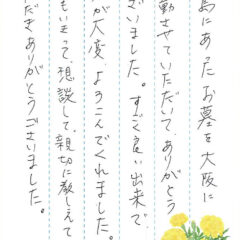 島にあったお墓を大阪に
動させていただいて、ありがとう
ざいました。すごく良い出来で、
が大変よろこんでくれました。
もいきって、想談して、親切に教しえて
だきありがとうございました。